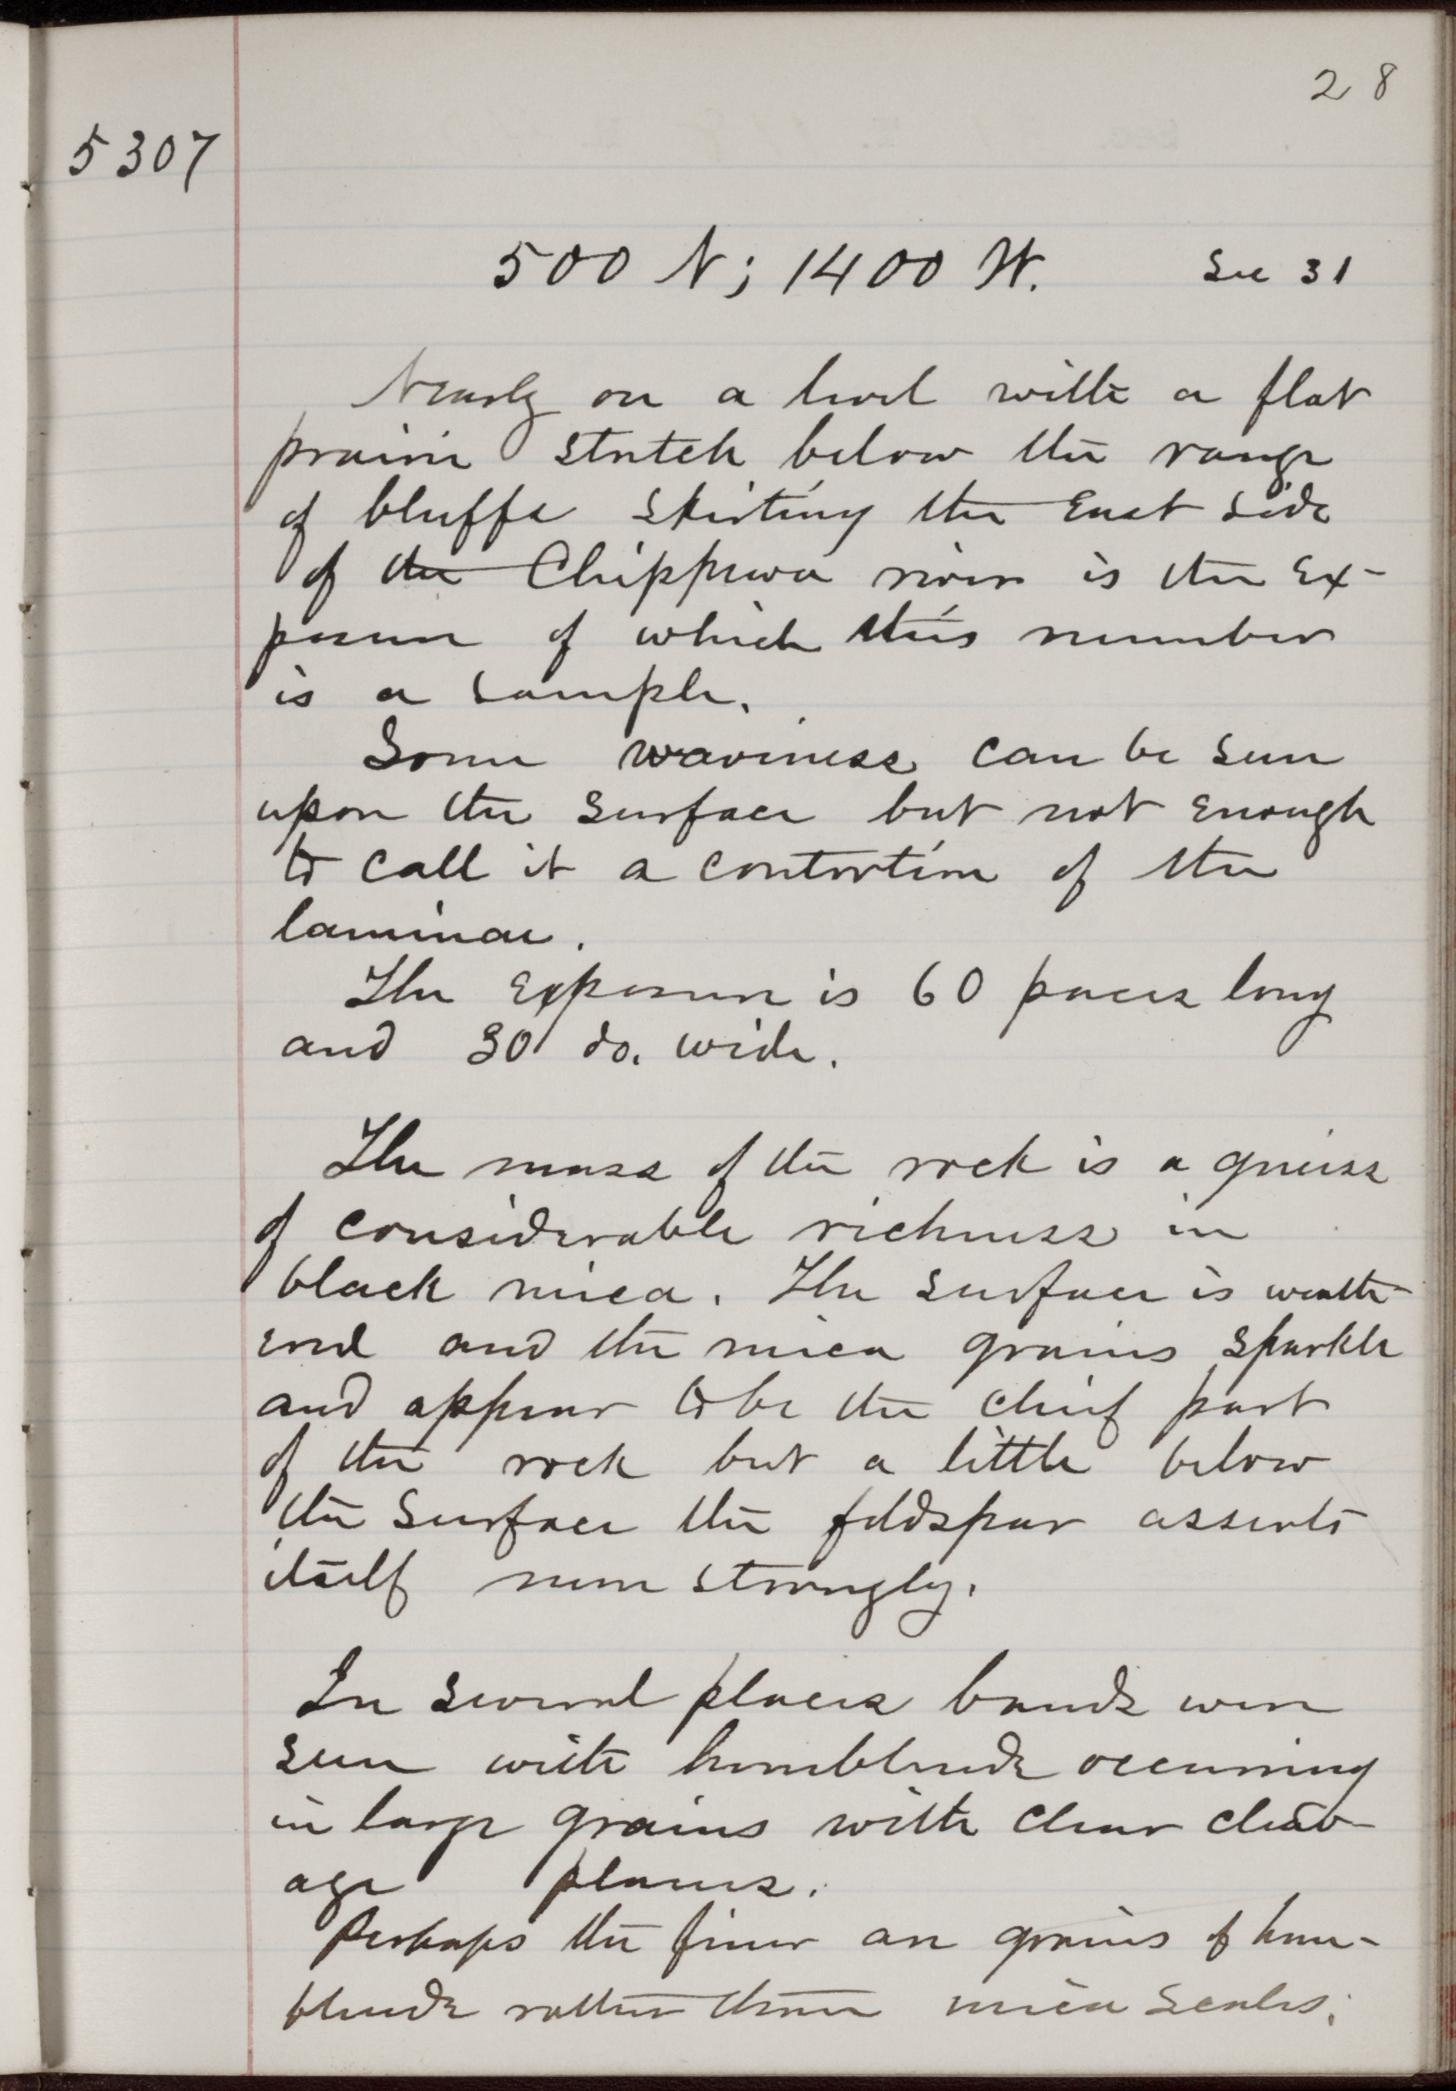 28
5307
500 N; 1400 W. Sec 31
Nearly on a level with a flat
prairie stretch below the range
of bluffs skirting the East side
of the Chippewa river is the ex-
posure of which this number
is a sample.
Some waviness can be seen
upon the surface but not enough
to call it a contortion of the
laminae.
The exposure is 60 paces long
and 30 do. wide.
The mass of the rock is a gneiss
of considerable richness in
black mica. The surface is weath-
ered and the mica grains sparkle
and appear to be the chief part
of the rock but a little below
the surface the feldspar asserts
itself more strongly.
In several places bands were
seen with hornblende occurring
in large grains with clear cleav-
age planes.
Perhaps the finer are grains of horn-
blende rather than mica scales.